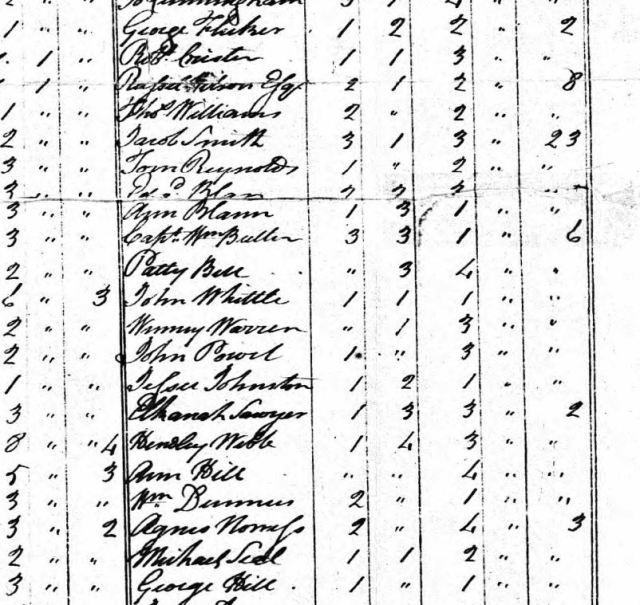 1 " " George Flicker 1 2 2 " 2
" 1 " Robt 1 1 3 " "
1 1 " Esqr 2 1 2 " 8
1 " " Thos Williams 2 " 2 " "
2 " " Jacob Smith 3 1 3 " 23
3 " " Reynolds 1 " 2 " "
3 " "
3 " " Ann Blann 1 3 1 " "
3 " " Capt. Wm Butler 3 3 1 " 6
2 " " Patty Bell " 3 4 " "
6 " 3 John Whittle 1 1 1 " "
2 " " Winney Warren " 1 3 " "
2 " " John Powel 1 " 3 " "
1 " " Johnston 1 2 1 " "
3 " " Elkanah Sawyer 1 3 3 " 2
8 " " 4 Hendley Webb 1 4 3 " "
5 " 3 Ann Hill " " 4 " "
3 " " Wm 2 " 1 " "
3 " 2 Agnes 2 " 4 " 3
2 " " Michael Seal 1 1 2 " "
3 " " George Hill 1 " 1 " "